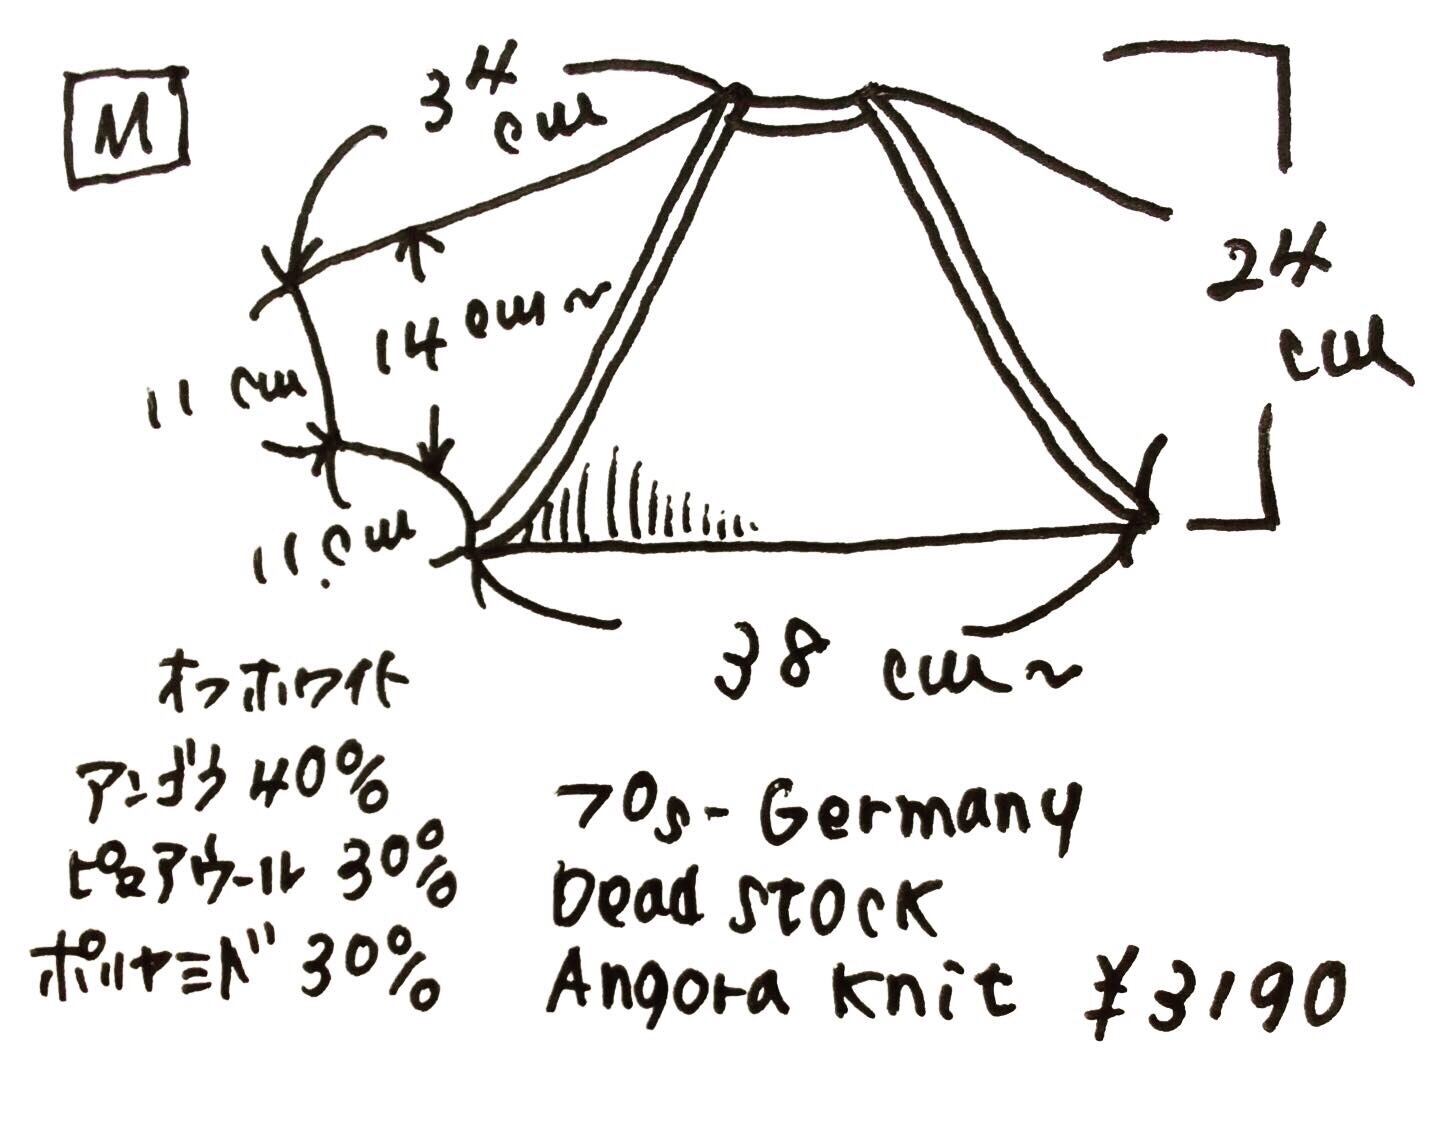 M
34
cm
24
cm
14cm~
11cm
11cm
38cm~
オフホワイト
アンゴラ40%
ピュアウール30%
ポリヤミド30%
70s-Germany
Dead stock
Angora knit ¥3190